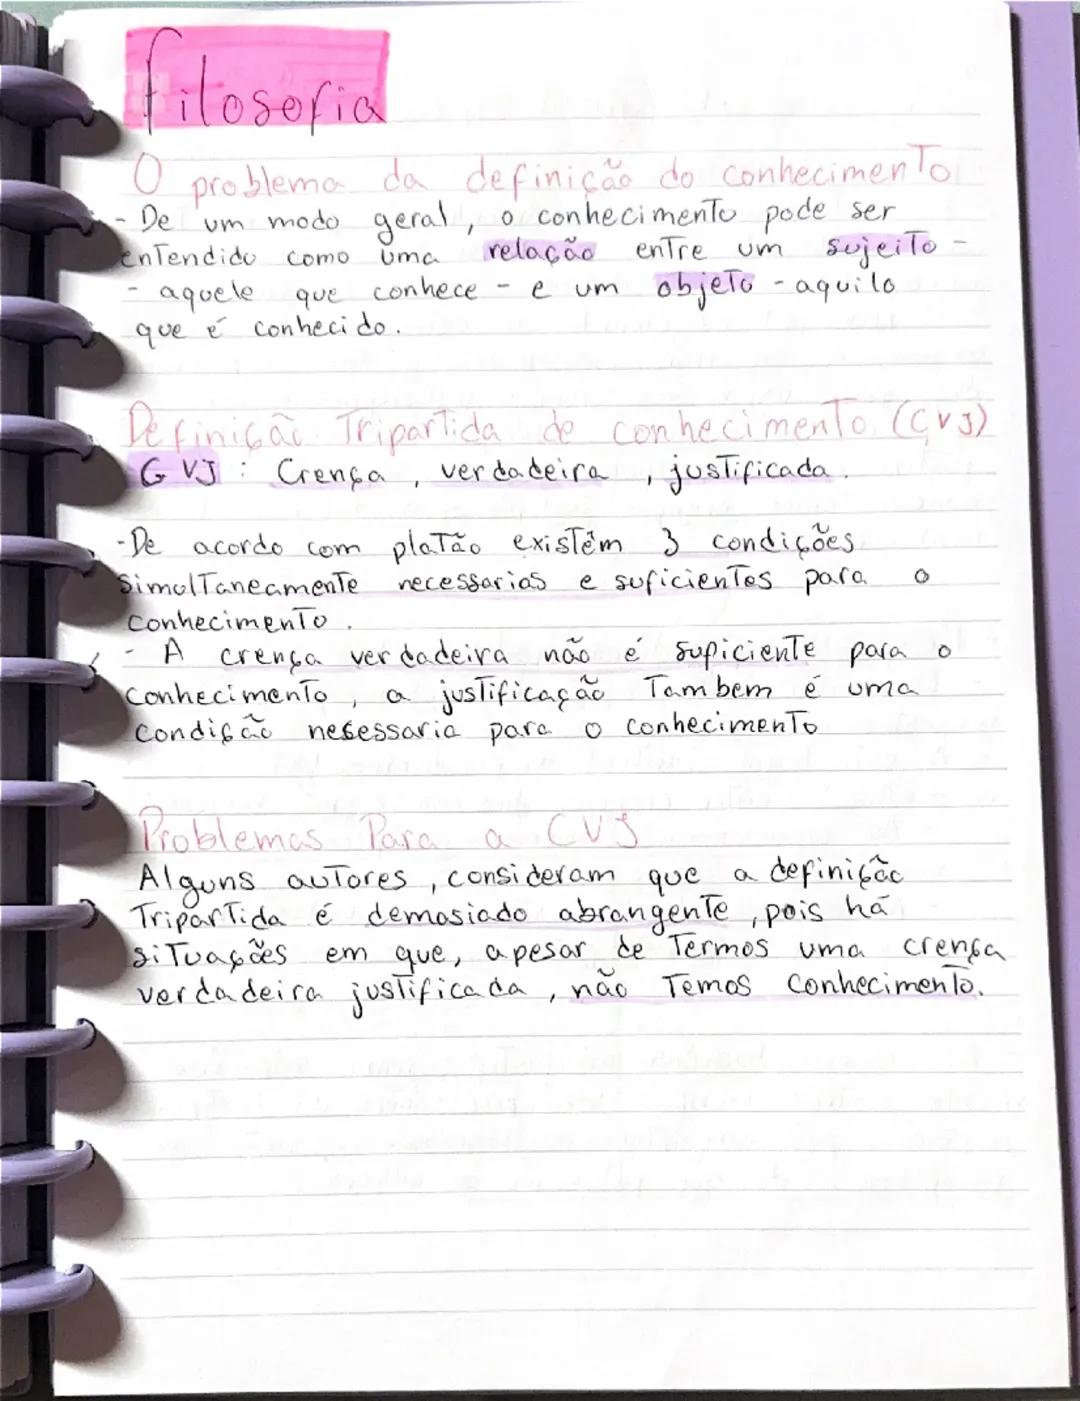 filosofia
O problema da definição do conhecimento
- De um modo geral, o conhecimento pode ser
entendido como uma relação entre um sujeito -
- aquele que conhece - e um objeto - aquilo
que é conhecido.
Definição Tripartida de conhecimento (CVJ)
CVJ : Crença, verdadeira, justificada.
- De acordo com platão existêm 3 condições
simultaneamente necessarias e suficientes para o
conhecimento.
- A crença verdadeira não é suficiente para o
conhecimento, a justificação Tambem é uma
condição necessaria para o conhecimento
Problemas Para a CVJ
Alguns autores, consideram que a definição
Tripartida é demasiado abrangente, pois há
situações em que, apesar de Termos uma crença
verdadeira justificada, não Temos conhecimento.